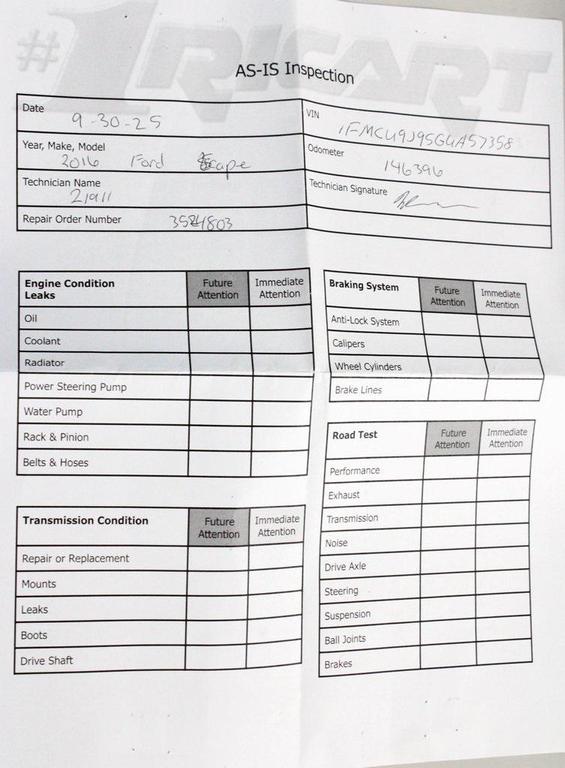 #1 RICART
AS-IS Inspection
Date 9-30-25
VIN 1FMCU9J95GUA57358
Year, Make, Model 2016 Ford Escape
Odometer 146396
Technician Name 21911
Technician Signature
Repair Order Number 3524803
Engine Condition Leaks Future Attention Immediate Attention
Oil
Coolant
Radiator
Power Steering Pump
Water Pump
Rack & Pinion
Belts & Hoses
Transmission Condition Future Attention Immediate Attention
Repair or Replacement
Mounts
Leaks
Boots
Drive Shaft
Braking System Future Attention Immediate Attention
Anti-Lock System
Calipers
Wheel Cylinders
Brake Lines
Road Test Future Attention Immediate Attention
Performance
Exhaust
Transmission
Noise
Drive Axle
Steering
Suspension
Ball Joints
Brakes